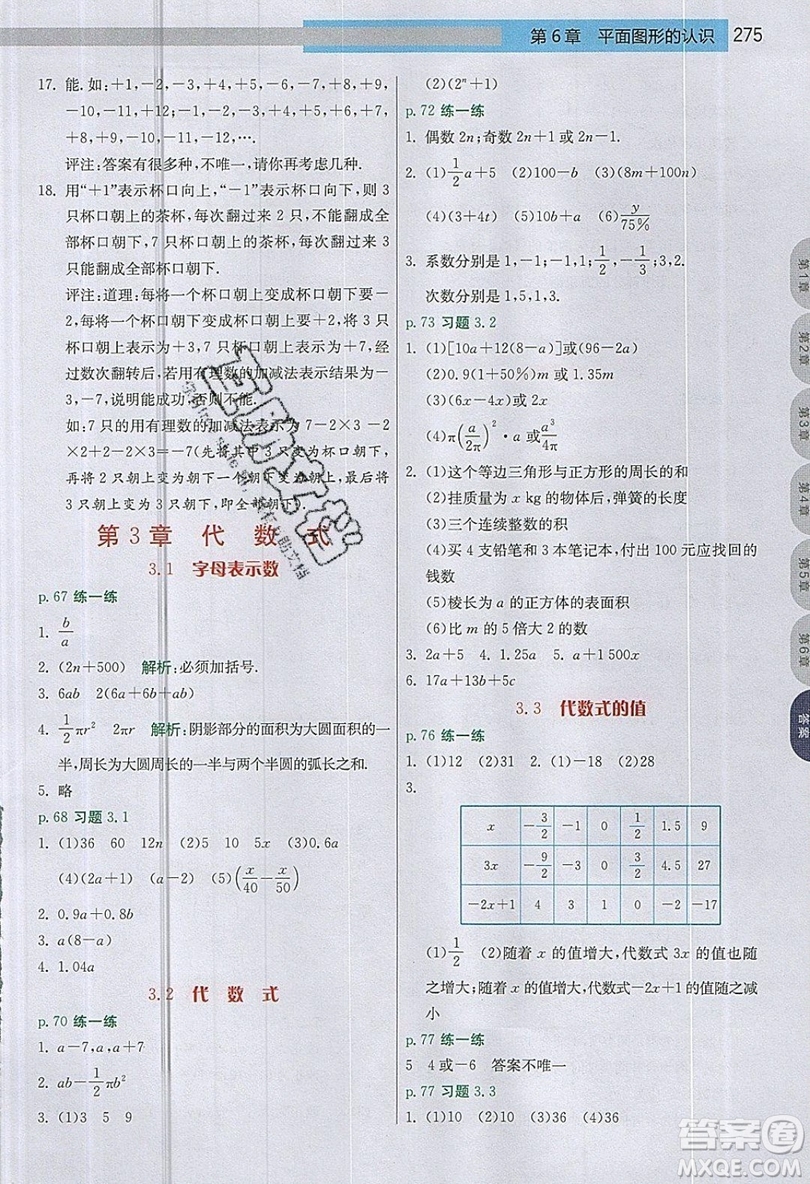 第6章 平面图形的认识 275
17. 能.如:+1,-2,-3,+4,+5,-6,-7,+8,+9,
-10,-11,+12;+1,+2,+3,-4,-5,+6,+7,
+8,+9,-10,-11,-12,….
评注:答案有很多种,不唯一,请你再考虑几种.
18. 用“+1”表示杯口向上,“-1”表示杯口向下,则3
只杯口朝上的茶杯,每次翻过来2只,不能翻成全
部杯口朝下.7只杯口朝上的茶杯,每次翻过来3
只,能翻成全部杯口朝下.
评注:道理:每将一个杯口朝上变成杯口朝下要-
2,每将一个杯口朝下变成杯口朝上要+2,3只杯口
朝上表示为+3,7只杯口朝上表示为+7,经过有限
次数翻转后,若用有理数的加减法表示结果为-3
与-7,说明能成功,否则不能.
如:7只的用有理数的加减法表示为7-2×3-2
×2+2-2×3=-7(先将其中3只杯口朝下,
再将2只朝上变为朝下1个朝下变为朝上,再将
3只朝上变为朝下,即全部朝下).
第3章 代 数 式
3.1 字母表示数
p.67 练一练
1. b/a
2. (2n+500) 解析:必须加括号.
3. 6ab 2(2a+3b)
4. 1/2 πr² 2πr 解析:阴影部分的面积为大圆面积的一
半,周长为大圆周长的一半与两个半圆的弧长之和.
5. 略
p.68 习题3.1
1. (1)36 60 12n (2)5 10 5x (3)0.6a
(4)(2+a) (a-2) (5)(x/40-x/50)
2. 0.9a+0.8b
3. a(8-a)
4. 1.04a
3.2 代 数 式
p.70 练一练
1. a-7,a+7
2. ab-1/2 πb²
3. (1)3 5 9
(2)(2ⁿ+1)
p.72 练一练
1. 偶数2n;奇数2n+1或2n-1.
2. (1)1/2 a+5 (2)100-5x (3)(8m+100)
(4)(3+4t) (5)10x+a (6)y/75%
3. 系数分别是1,-1;-1,1;1/2,-1/3;-3.
次数分别是1,5,1,3.
p.73 习题3.2
1. (1)[10a+12(8-a)]或(96-2a)
(2)0.9(1+50%)m或1.35m
(3)(6x-4x)或2x
(4)π(a/2π)²·a或a³/4π
2. (1)这个等边三角形与正方形的周长的和
(2)挂质量为x kg的物体后,弹簧的长度
(3)三个连续整数的积
(4)买4支铅笔和3本笔记本,付出100元应找回的
钱数
(5)棱长为a的正方体的表面积
(6)比m的5倍大2的数
3. 2a+5 4. 9x-9 5. a(a+2)
6. 17a+13b+5c
3.3 代数式的值
p.76 练一练
1. (1)12 (2)31 2. (1)-18 (2)28
3.
x -3/2 -1 0 1/2 1.5 9
3x -9/2 -3 0 3/2 4.5 27
-2x+1 4 3 1 0 -2 -17
(1)1/2 (2)随着x的值增大,代数式3x的值也
随之增大;随着x的值增大,代数式-2x+1的值随之减
小
p.77 练一练
5 4或-6 答案不唯一
p.77 习题3.3
1. (1)10 (2)10 (3)36 (4)36
第1章
第2章
第3章
第4章
第5章
第6章
答案
答案圈
MXQE.COM